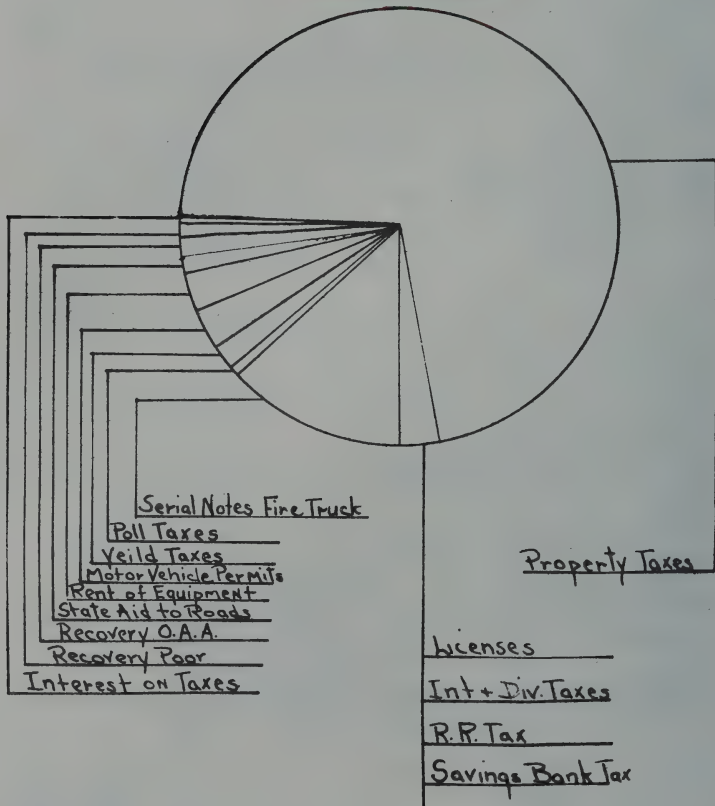 Serial Notes Fire Truck
Poll Taxes
Yeild Taxes
Motor Vehicle Permits
Rent of Equipment
State Aid to Roads
Recovery O.A.A.
Recovery Poor
Interest on Taxes
Property Taxes
Licenses
Int + Div. Taxes
R.R. Tax
Savings Bank Tax